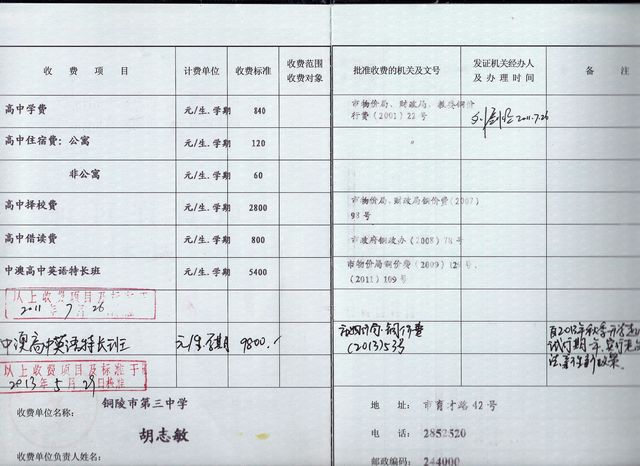 收费项目 计费单位 收费标准 收费范围 收费对象 批准收费的机关及文号 发证机关经办人及办理时间 备注
高中学费 元/生.学期 840 市物价局、财政局、教委铜价行费(2001)22号 2011.7.26
高中住宿费：公寓 元/生.学期 120 〃
非公寓 元/生.学期 60
高中择校费 元/生.学期 2800 市物价局、财政局铜价费(2007)98号
高中借读费 元/生.学期 800 市政府铜政办(2008)78号
中澳高中英语特长班 元/生.学期 5400 市物价局铜价费(2009)129号、(2011)109号
以上收费项目及标准于
2011年7月26
中澳高中英语特长班 元/生.学期 9800.- 铜价费(2013)53号 自2013年秋季 试行期一年
以上收费项目及标准于
2013年5月29日核准
收费单位名称： 铜陵市第三中学 地址： 市育才路42号
胡志敏 电话： 2852520
收费单位负责人姓名： 邮政编码： 244000